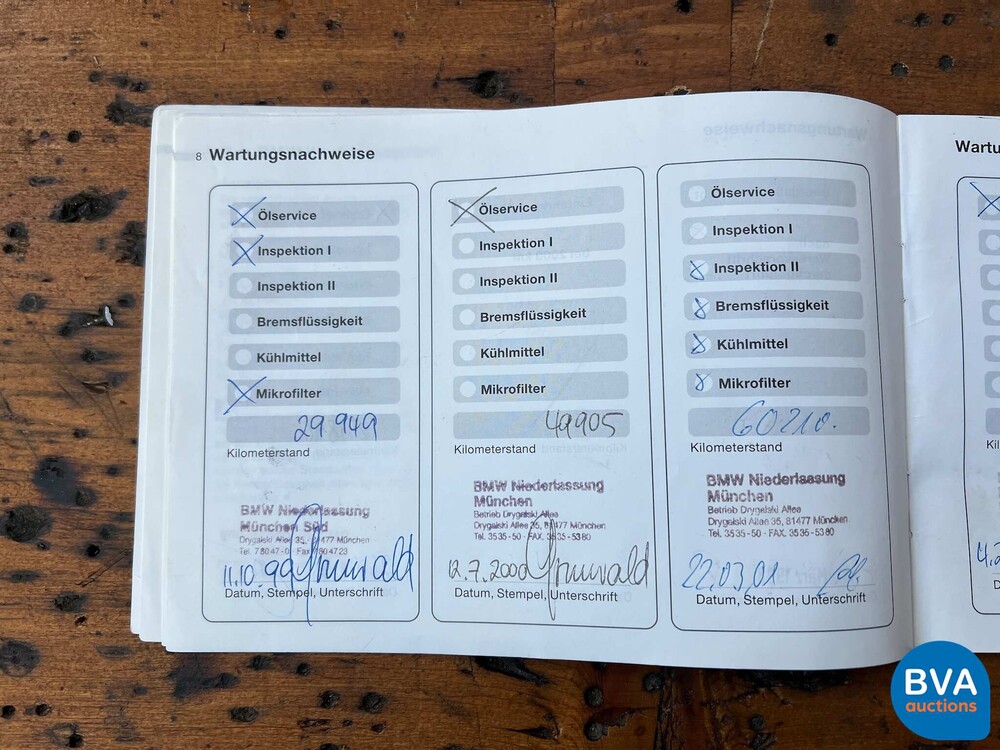 8 Wartungsnachweise
Ölservice
Inspektion I
Inspektion II
Bremsflüssigkeit
Kühlmittel
Mikrofilter
29 949
Kilometerstand
BMW Niederlassung
München Süd
Drygalski Allee 35
11.10.99 Grunwald
Datum, Stempel, Unterschrift
Ölservice
Inspektion I
Inspektion II
Bremsflüssigkeit
Kühlmittel
Mikrofilter
49905
Kilometerstand
BMW Niederlassung
München
Betrieb Drygalski Allee
Drygalski Allee 35, 81477 München
Tel. 35 35 - 50 · FAX. 35 35 - 53 80
12.7.2000 Grunwald
Datum, Stempel, Unterschrift
Ölservice
Inspektion I
Inspektion II
Bremsflüssigkeit
Kühlmittel
Mikrofilter
60210.
Kilometerstand
BMW Niederlassung
München
Betrieb Drygalski Allee
Drygalski Allee 35, 81477 München
Tel. 35 35 - 50 · FAX. 35 35 - 53 80
22.03.01
Datum, Stempel, Unterschrift
Wartu
BVA
auctions